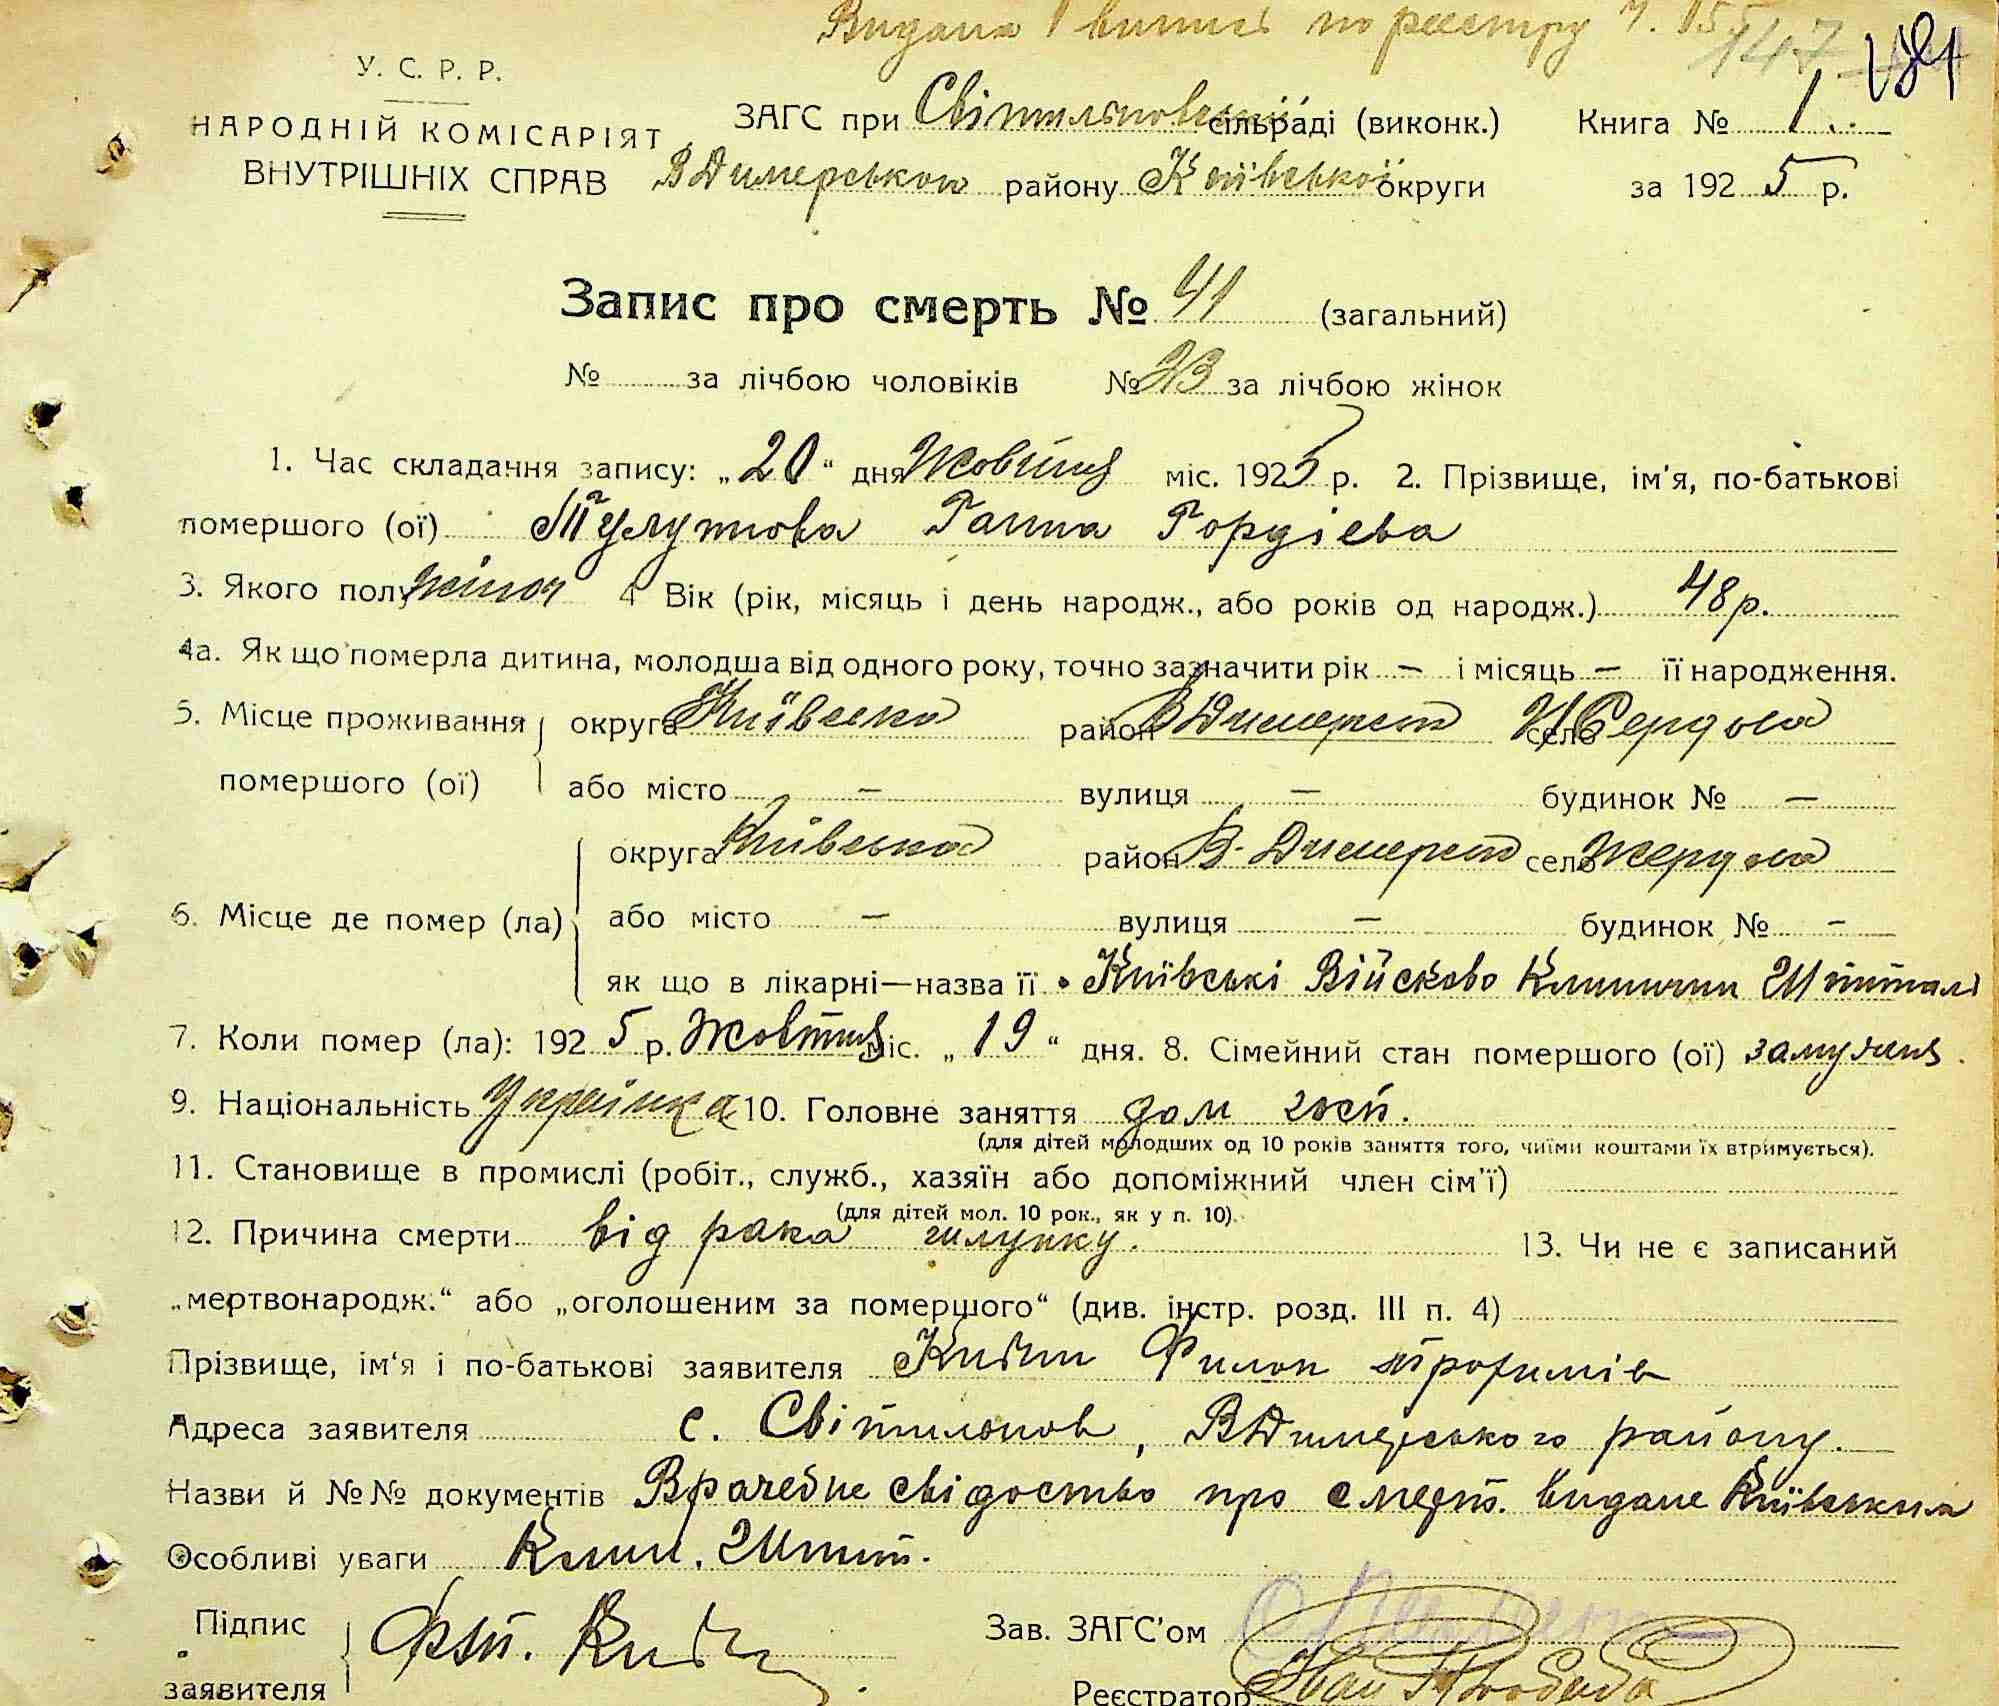 Видана 1 витись по реєстру ч.
147
У. С. Р. Р.
НАРОДНІЙ КОМІСАРІЯТ
ВНУТРІШНІХ СПРАВ
ЗАГС при сільраді (виконк.) Книга № 1
ВДимерського району Київської округи за 1925 р.
Запис про смерть № 41 (загальний)
№ за лічбою чоловіків № 23 за лічбою жінок
1. Час складання запису: „20“ дня Жовтня міс. 1925 р. 2. Прізвище, ім'я, по-батькові
помершого (ої) Ганна Гордієва
3. Якого полу жіноч 4 Вік (рік, місяць і день народж., або років од народж.) 48 р.
4а. Як що померла дитина, молодша від одного року, точно зазначити рік — і місяць — її народження.
5. Місце проживання округа Київська район ВДимерськ село
помершого (ої) або місто — вулиця — будинок № —
округа Київська район В-Димерськ село
6. Місце де помер (ла) або місто — вулиця — будинок № —
як що в лікарні—назва її Київські Військово Клинични Шпиталі
7. Коли помер (ла): 1925 р. Жовтня міс. „19“ дня. 8. Сімейний стан помершого (ої) замужня.
9. Національність Українка 10. Головне заняття дом госп.
(для дітей молодших од 10 років заняття того, чиїми коштами їх втримується).
11. Становище в промислі (робіт., служб., хазяїн або допоміжний член сім'ї)
(для дітей мол. 10 рок., як у п. 10).
12. Причина смерти від рака шлунку. 13. Чи не є записаний
„мертвонародж.“ або „оголошеним за помершого“ (див. інстр. розд. III п. 4)
Прізвище, ім'я і по-батькові заявителя Филон Трохимів
Адреса заявителя с. Світильнов, ВДимерського району.
Назви й №№ документів Врачебне свідоство про смерт. видане Київським
Особливі уваги Клин. Шпит.
Підпис
заявителя
Зав. ЗАГС'ом
Реєстратор Іван